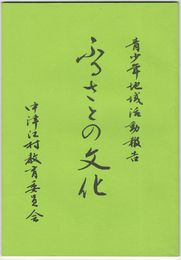 青少年地域活動報告
ふるさとの文化
中津江村教育委員会